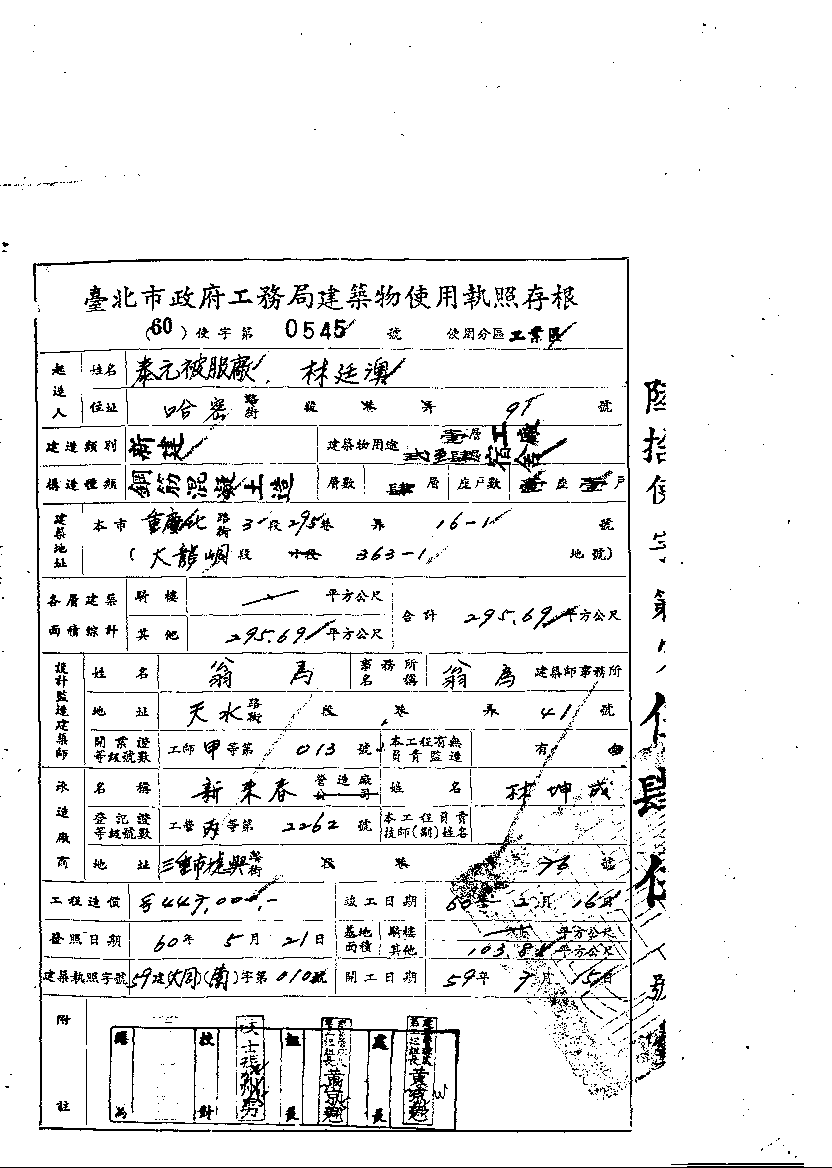 臺北市政府工務局建築物使用執照存根
(60)使字第 0545 號 使用分區 工業區
起造人 姓名 泰元被服廠, 林廷澳
住址 哈密 路街 段 巷 弄 91 號
建造類別 新建 建築物用途 壹層工廠 貳至肆層宿舍
構造種類 鋼筋混凝土造 層數 肆層 座戶數 壹座壹戶
建築地址 本市 重慶北 路街 3 段 295 巷 弄 16-1 號
(大龍峒段 小段 363-1 地號)
各層建築面積綜計 騎樓 平方公尺 合計 295.69 平方公尺
其他 295.69 平方公尺
設計監造建築師 姓名 翁為 事務所名稱 翁為 建築師事務所
地址 天水 路街 段 巷 弄 41 號
開業證等級號數 工師甲等第 013 號 本工程有無負責監造 有
承造廠商 名稱 新來春 營造廠公司 姓名 林坤成
登記證等級號數 工營丙等第 2262 號 本工程負責技師(副)姓名
地址 三重市 路街 段 巷 76 號
工程造價 447,000.- 竣工日期 60年 2月 16日
發照日期 60年 5月 21日 基地面積 騎樓 平方公尺
其他 103.88 平方公尺
建築執照字號 59建(大同)(南)字第010號 開工日期 59年 9月 15日
附註
陸拾使字第